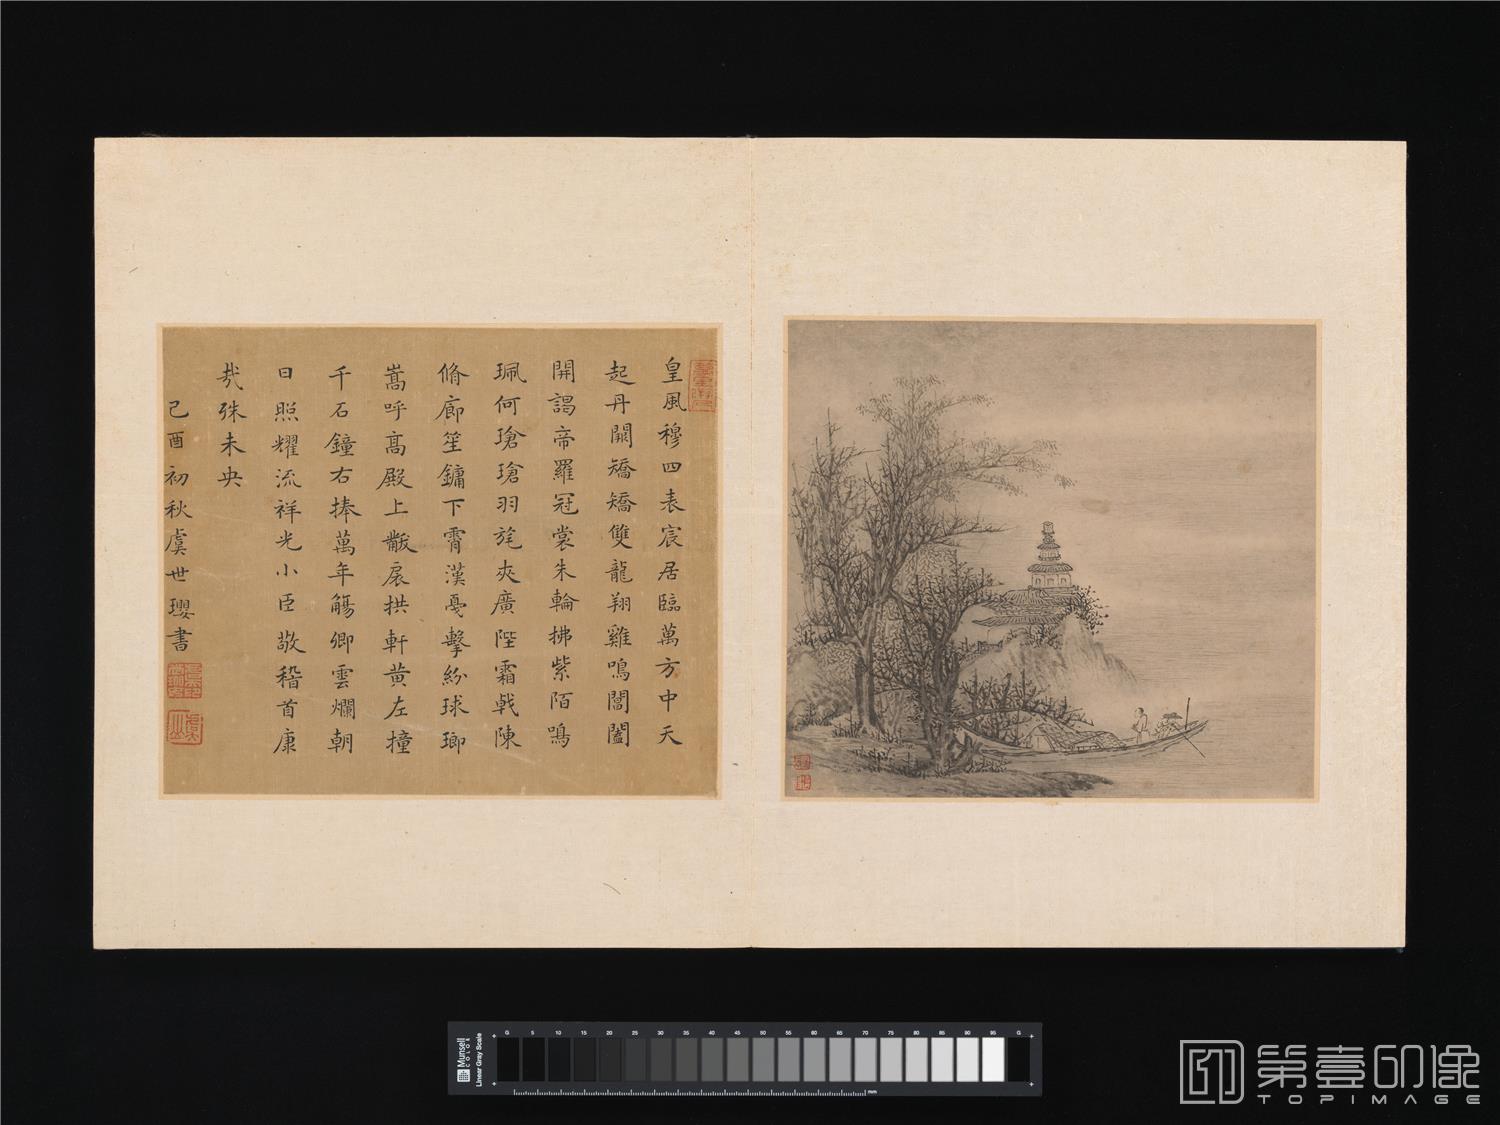 皇風穆四表宸居臨萬方中天
起丹闕矯矯雙龍翔雞鳴閶闔
開謁帝羅冠裳朱輪拂紫陌鳴
珮何瑲瑲羽旄夾廣陛霜戟陳
脩廊笙鏞下霄漢戛擊紛球瑯
嵩呼髙殿上黻扆拱軒黄左撞
千石鐘右捧萬年觴卿雲爛朝
日照耀流祥光小臣敬稽首康
哉殊未央
己酉初秋虞世瓔書
Munsell
COLOR
Linear Gray Scale
G 5 10 15 20 25 30 35 40 45 50 55 60 65 70 75 80 85 90 95 G
mm
第壹印像
TOPIMAGE